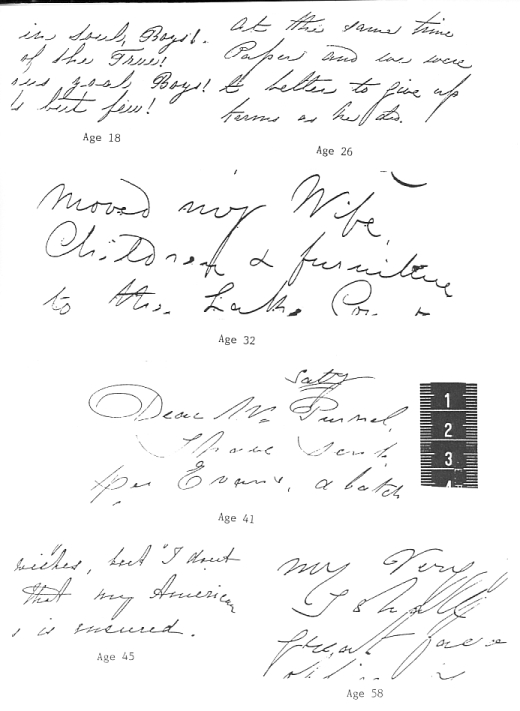 in soul, Boys!
of the True!
goal, Boys!
but few!
Age 18
at the same time
Paper and we were
to better to give up
terms as he did.
Age 26
Moved my Wife,
Children & furniture
to the Lake
Age 32
Satdy
Dear Mr Purnel,
I have sent
per Evans, a batch
Age 41
1
2
3
4
wishes, but "I don't
that my American
is insured.
Age 45
my Very
great
Age 58